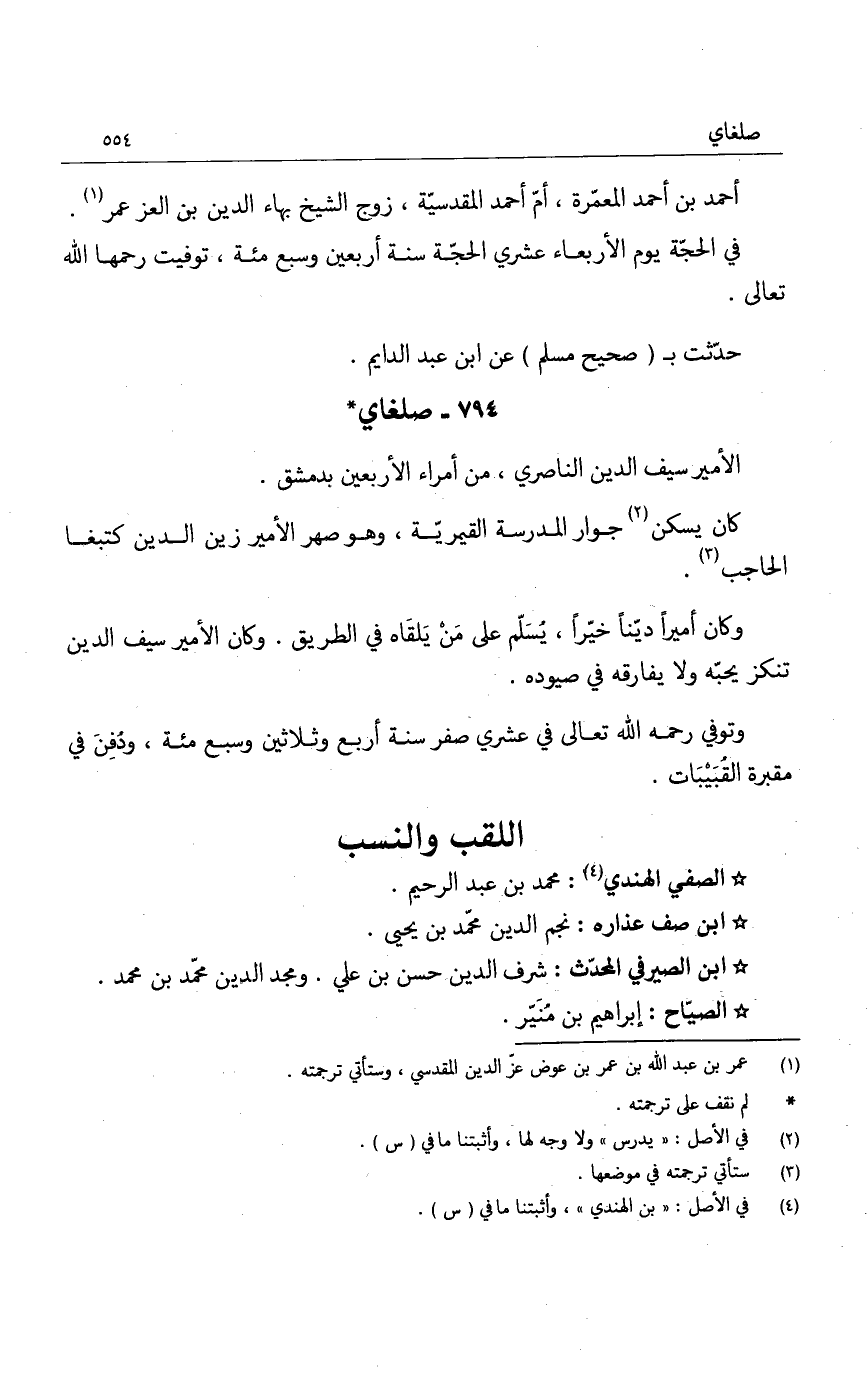 صلغاي ٥٥٤
أحمد بن أحمد المعمّرة ، أمّ أحمد المقدسيّة ، زوج الشيخ بهاء الدين بن العز عمر(١) .
في الحجّة يوم الأربعاء عشري الحجّة سنة أربعين وسبع مئة ، توفيت رحمها الله
تعالى .
حدّثت بـ ( صحيح مسلم ) عن ابن عبد الدايم .
٧٩٤ ـ صلغاي*
الأمير سيف الدين الناصري ، من أمراء الأربعين بدمشق .
كان يسكن(٢) جوار المدرسة القيمريّة ، وهو صهر الأمير زين الدين كتبغا
الحاجب(٣) .
وكان أميراً ديّناً خيّراً ، يُسَلّم على مَنْ يَلقَاه في الطريق . وكان الأمير سيف الدين
تنكز يحبّه ولا يفارقه في صيوده .
وتوفي رحمه الله تعالى في عشري صفر سنة أربع وثلاثين وسبع مئة ، ودُفِنَ في
مقبرة القُبَيْبَات .
اللقب والنسب
☆ الصفي الهندي(٤) : محمد بن عبد الرحيم .
☆ ابن صف عذاره : نجم الدين محمّد بن يحيى .
☆ ابن الصيرفي المحدّث : شرف الدين حسن بن علي . ومجد الدين محمّد بن محمد .
☆ الصيّاح : إبراهيم بن مُنَيّر .
(١) عمر بن عبد الله بن عمر بن عوض عزّ الدين المقدسي ، وستأتي ترجمته .
* لم نقف على ترجمته .
(٢) في الأصل : « يدرس » ولا وجه لها ، وأثبتنا ما في ( س ) .
(٣) ستأتي ترجمته في موضعها .
(٤) في الأصل : « بن الهندي » ، وأثبتنا ما في ( س ) .